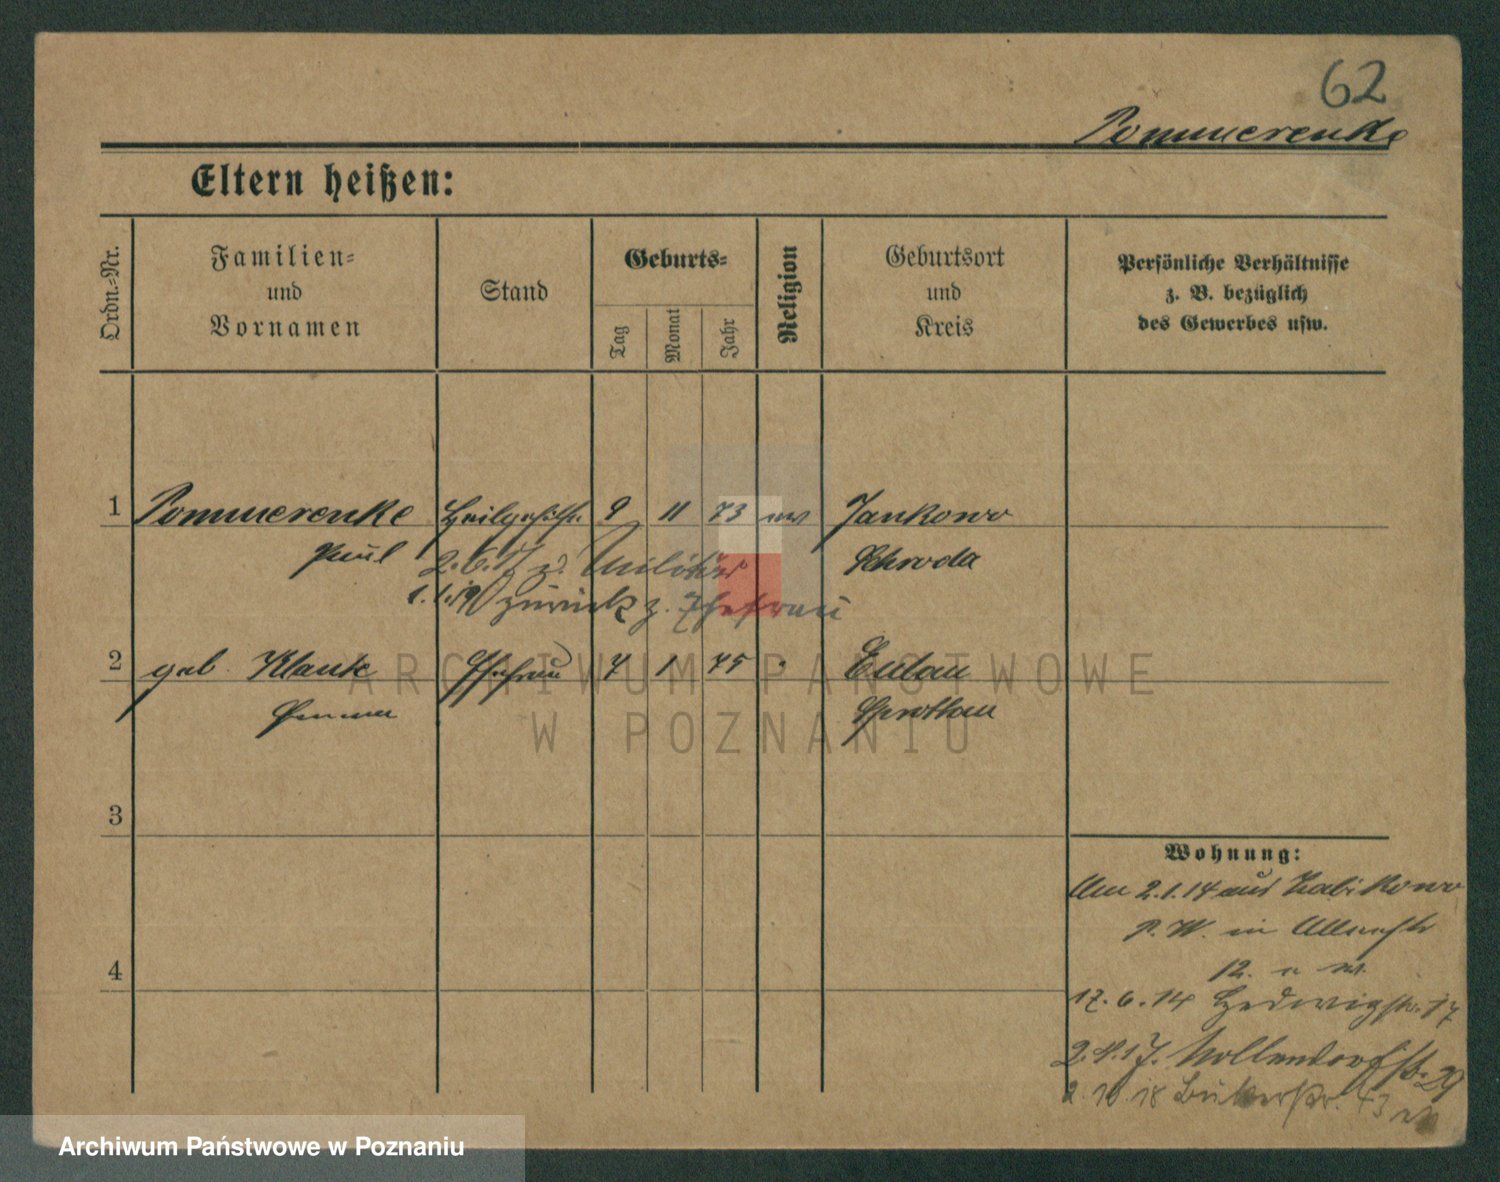 62
Pommerenke
Eltern heißen:
Ordn.-Nr.
Familien-
und
Vornamen
Stand
Geburts-
Tag
Monat
Jahr
Religion
Geburtsort
und
Kreis
Persönliche Verhältnisse
z. B. bezüglich
des Gewerbes usw.
1 Pommerenke Heilgehilfe 9 11 73 ev Jankowo
Paul Schroda
2.6.17 z. Militär
1.1.19 zurück z. Ehefrau
2 geb. Klauke Ehefrau 7 1 75 " Eulau
Emma Sprottau
3
4
Wohnung:
Am 2.1.14 aus Zabikowo
P. W. in
12.
17.6.14 Hedwigstr. 17
2.4.17. Nollendorfstr. 29
2.10.18 Bukerstr. 73
ARCHIWUM PAŃSTWOWE
W POZNANIU
Archiwum Państwowe w Poznaniu